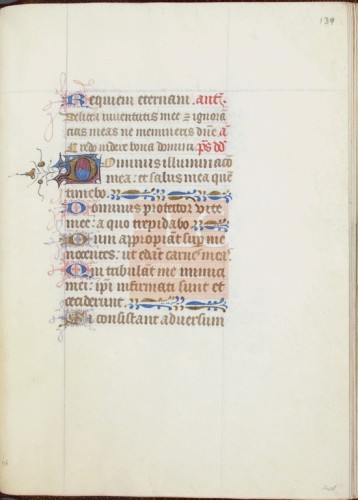 139
Requiem eternam. ant.
Delicta iuventutis mee et ignorā
cias meas ne memineris dn̄e. a
Credo videre bona domini. p̄s dd
Dominus illuminacō
mea: et salus mea quē
timebo.
Dominus protector vite
mee: a quo trepidabo.
Dum appropiāt sup me
nocentes: ut edāt carnes mei.
Qui tribulāt me inimici
mei: ip̄i infirmati sunt et
ceciderunt.
Si consistant adversum